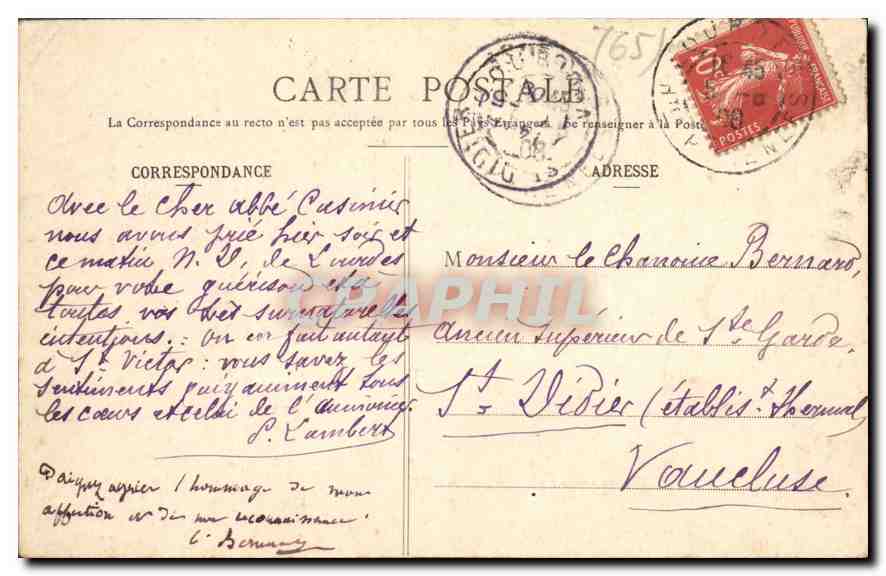 CARTE POSTALE
La Correspondance au recto n'est pas acceptée par tous les Pays Etrangers. Se renseigner à la Poste
CORRESPONDANCE
ADRESSE
Avec le cher abbé Casimir
nous avons prié hier soir et
ce matin N. D. de Lourdes
pour votre guérison et à
toutes vos très surnaturelles
intentions : on en fait autant
à St Victor : vous savez les
sentiments pour
tous
les cœurs et celui de l'aumônier.
P. Lambert
Daignez agréer l'hommage de mon
affection et de ma reconnaissance.
Monsieur le Chanoine Bernard,
ancien supérieur de Ste Garde,
St Didier (établist thermal)
Vaucluse.
(765)
10
POSTES
REPUBLIQUE FRANÇAISE
08
CPAPHIL